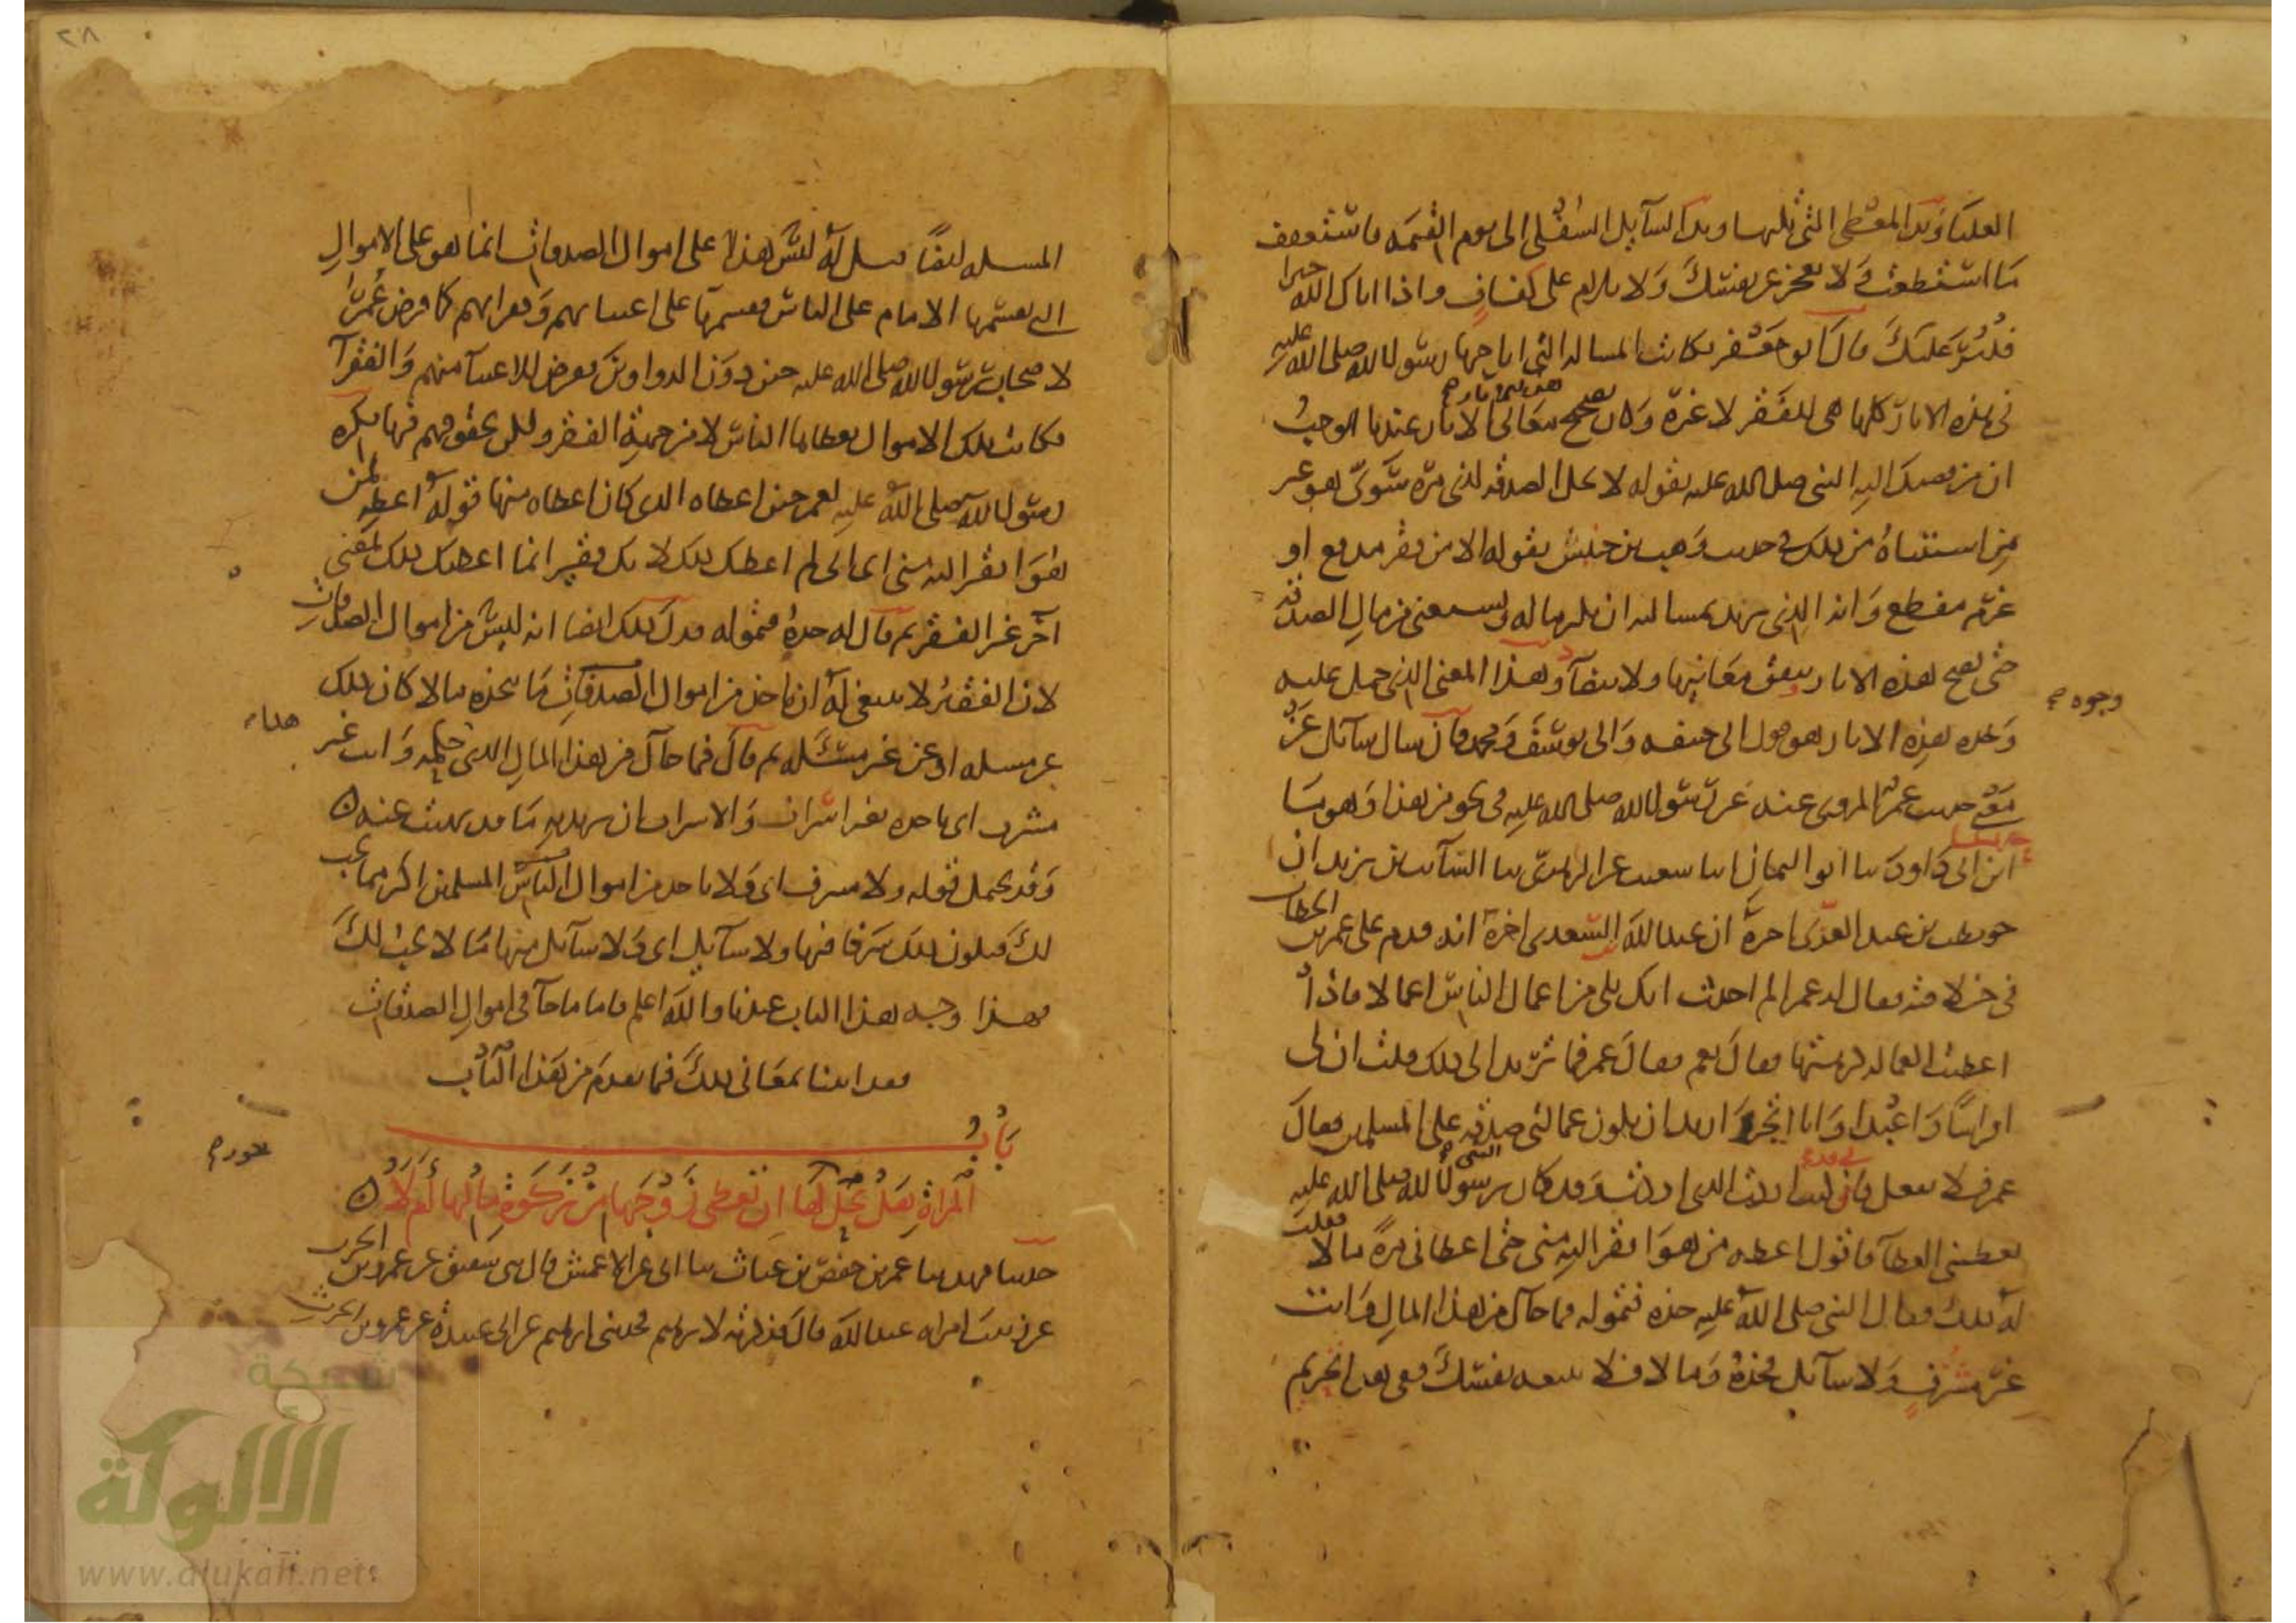 العليا ويد المعطي التي تليها ويد السائل السفلى الى يوم القيمة فاستعفف
ما استطعت ولا تعجز عن نفسك ولا تلام على كفاف واذا اتاك الله خيرا
فلير عليك قال ابو جعفر فكانت المسالة التي اباحها رسول الله صلى الله عليه
في هذه الاثار كلها هي للفقر لا غيره وكان تصحيح معاني الاثار عندنا يوجب
ان من قصد اليه النبي صلى الله عليه بقوله لا تحل الصدقة لذي مرة سوي هو غير
من استثناه من ذلك في حديث وهب بن خنبش بقوله الا من فقر مدقع او
غرم مفظع وانه الذي يريد بمسالته ان يكثر ماله ويستغني من مال الصدقة
حتى تصح هذه الاثار وتتفق معانيها ولا تتضاد وهذا المعنى الذي حمل عليه
وجوه
وجوه هذه الاثار هو قول ابي حنيفة وابي يوسف ومحمد فان سال سائل عن
معنى حديث عمر المروي عنه عن رسول الله صلى الله عليه في نحو من هذا وهو ما
ابن ابي داود ثنا ابو اليمان انا شعيب عن الزهري ثنا السائب بن يزيد ان
حويطب بن عبد العزى اخبره ان عبد الله السعدي اخبره انه قدم على عمر بن الخطاب
في خلافته فقال له عمر الم احدث انك تلي من اعمال الناس اعمالا فاذا
اعطيت العمالة كرهتها فقال نعم فقال عمر فما تريد الى ذلك قلت ان لي
افراسا واعبدا وانا اتجر واريد ان يكون عمالتي صدقة على المسلمين فقال
عمر فلا تفعل فاني اردت الذي اردت وقد كان رسول الله صلى الله عليه
يعطيني العطاء فاقول اعطه من هو افقر اليه مني حتى اعطاني مرة مالا فقلت
له ذلك فقال النبي صلى الله عليه خذه فتموله فما جاك من هذا المال وانت
غير مشرف ولا سائل فخذه وما لا فلا تتبعه نفسك ففي هذا تحريم
٢٨
المسئلة ايضا قيل له ليس هذا على اموال الصدقات انما هو على الاموال
التي يقسمها الامام على الناس فيقسمها على اغنيائهم وفقرائهم كما فرض عمر
لاصحاب رسول الله صلى الله عليه حين دون الدواوين ففرض للاغنياء منهم والفقراء
فكانت تلك الاموال يعطاها الناس لا من جهة الفقر ولكن بحقوقهم فيها فكره
رسول الله صلى الله عليه لعمر حين اعطاه الذي كان اعطاه منها قوله اعطه لمن
هو افقر اليه مني اي اني لم اعطك ذلك لانك فقير انما اعطيتك ذلك لمعنى
اخر غير الفقر ثم قال له خذه فتموله فدل ذلك ايضا انه ليس من اموال الصدقات
لان الفقير لا ينبغي له ان ياخذ من اموال الصدقات ما يتخذه مالا كان ذلك
عن مسئلة او عن غير مسئلة ثم قال فما جاك من هذا المال الذي حكمه وانت غير
هذا
مشرف اي تاخذه بغير اشراف والاشراف ان يريد به ما قد نهيت عنه ه
وقد يحتمل قوله ولا مشرف اي ولا تاخذ من اموال الناس المسلمين اكثر مما يجب
لك فيكون ذلك سرفا فيها ولا سائل اي ولا سائل منها ما لا يجب لك
فهذا وجه هذا الباب عندنا والله اعلم فاما ما جاء في اموال الصدقات
فقد اتينا بمعاني ذلك فيما تقدم من هذا الكتاب
باب
المراة هل يحل لها ان تعطي زوجها من زكوة مالها ام لا ه
حدثنا فهد ثنا عمر بن حفص بن غياث ثنا ابي عن الاعمش قال ثني شقيق عن عمرو بن الحرث
عن زينب امراة عبد الله قال فذكرته لابرهيم فحدثني ابرهيم عن ابي عبيدة عن عمرو بن الحرث
شبكة
الألوكة
www.alukah.net